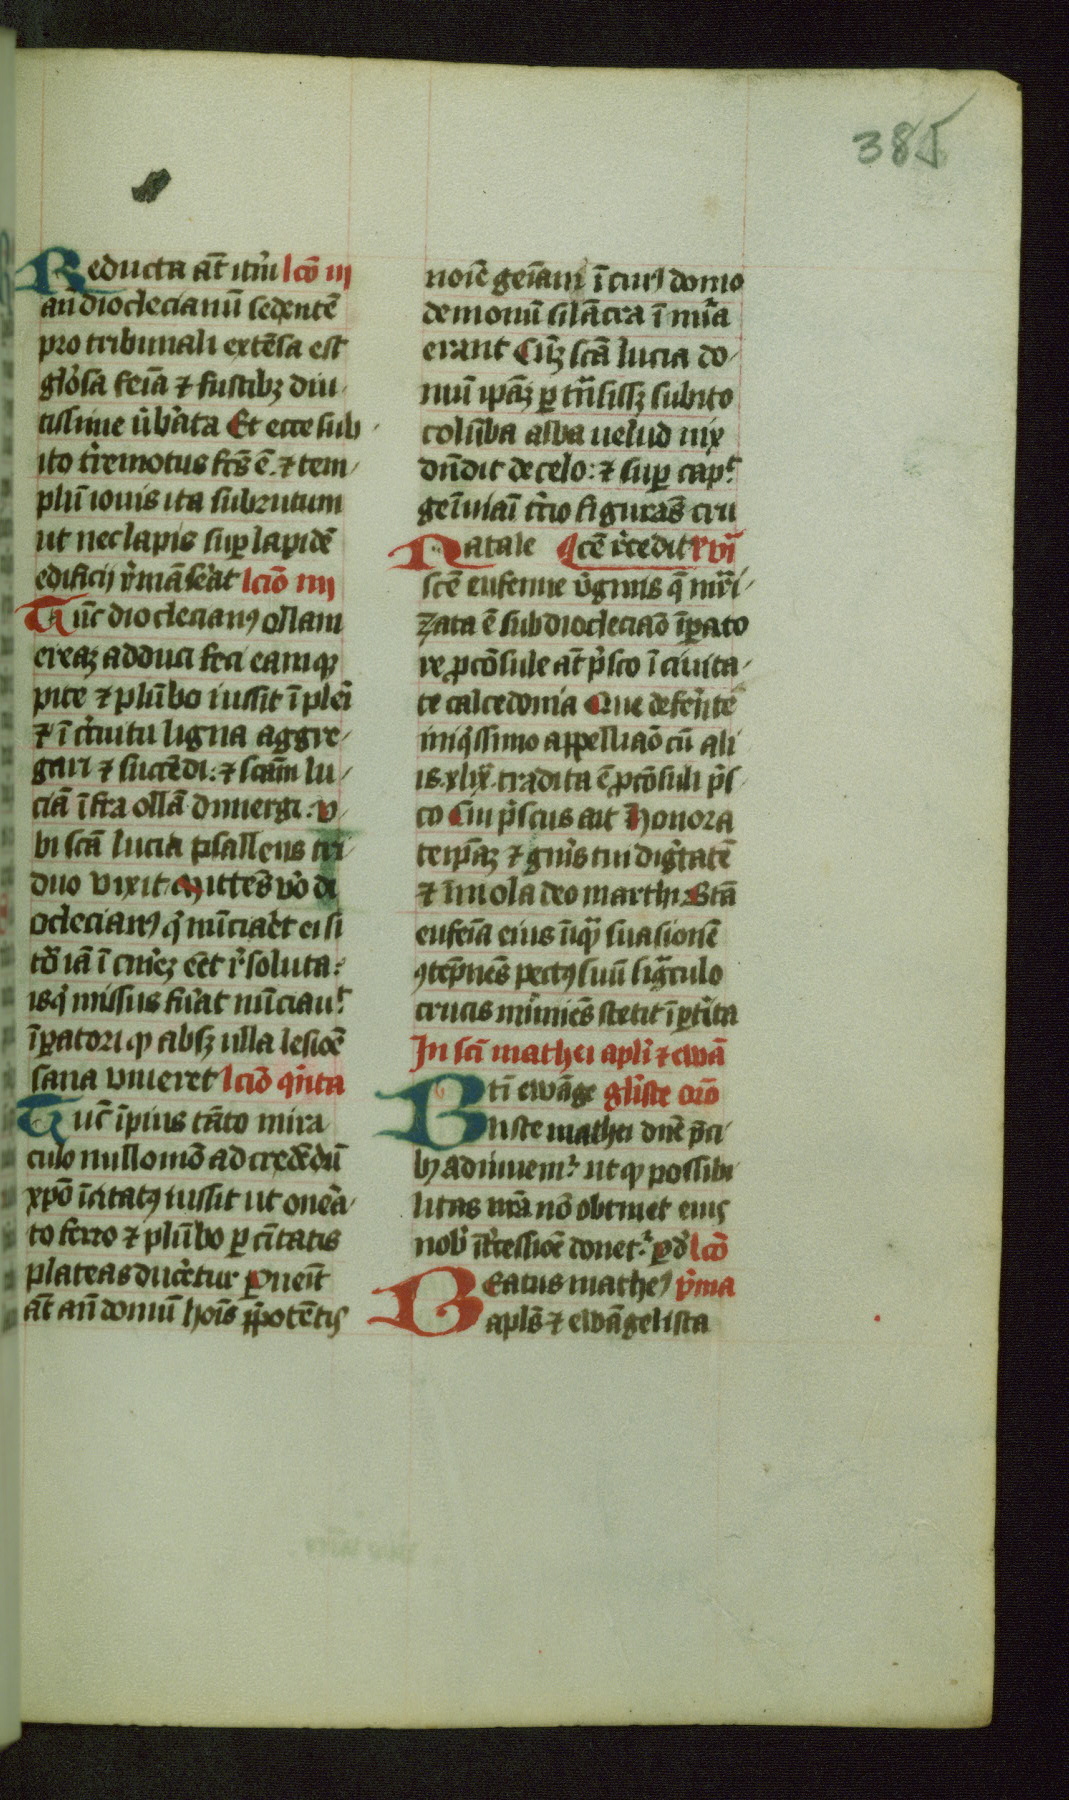 385
Reducta at̄ itm̄ lcō iij
an̄ dioclecianū sedentē
pro tribunali extēsa est
feīa ⁊ fustibꝫ diu
tissime Et ecce sub
ito t̄remotus fcs̄ ē. ⁊ tem
plū iouis ita subrutum
ut nec lapis suꝑ lapidē
edificij lcīo iiij
Tūc dioclecianꝯ ollam
ereaꝫ adduci feci eamqꝫ
pice ⁊ plūbo iussit īpleri
⁊ ī c̄cuitu ligna aggre
gari ⁊ succēdi: ⁊ scām lu
ciā īfra ollā dimergi. v
bi scā lucia psallens tri
duo vixit. Mittēs v̄o di
oclecianꝯ q̄ nūciaret ei si
iā ī soluta.
isq̄ missus fuāt nūciauᷣ
īꝑatori ꝙ absꝫ ulla lesiōe
sana viueret lcīo qīnta
Tūc īpius tāto mira
culo nullomō ad credēdū
xp̄o īcitatꝯ iussit ut onea
to ferro ⁊ plūbo ꝑ cītatis
plateas duc̄etur Pueīt
at̄ an̄ domū hoīs p̄potētis
noīe geīam ī cuiꝯ domo
demonū silācra ī mīa
erant Cūꝫ scā lucia do
mū ipāꝫ ꝑ trn̄sissꝫ subito
colūba alba uelud nix
dn̄dit de celo: ⁊ suꝑ capᷣ
gemīaī c̄cio figurās cru
Natale ¶cē v̄cedit xvi
scē eufemie v̄ginis q̄ mr̄i
zata ē sub diocleciāo īꝑato
re ꝓcōsule at̄ p̄sco ī ciuita
te calcedonia Que
iniq̄ssimo appelliāo cū ali
is. xlix. tradita ē ꝓcōsuli p̄s
co Cui p̄scus ait Honora
teipāꝫ ⁊ gn̄is tui diḡtatē
⁊ īmola deo marthi. Scā
eufeīa eius īiqꝫ suasionē
ꝯtēpnēs pectꝯ suū siḡculo
crucis stetit īꝑt̄ita
In scī mathei apli ⁊ ewā
Bti ewāge gl̄iste orō
niste mathei dn̄e p̄ci
bꝯ adiuuemᷣ. ut ꝙ possibi
litas nr̄a nō obtinet eius
nob̄ ītcessiōe donetᷣ. ꝑ d̄ lcō
Beatus matheꝯ p̄ma
apls̄ ⁊ ewāgelista